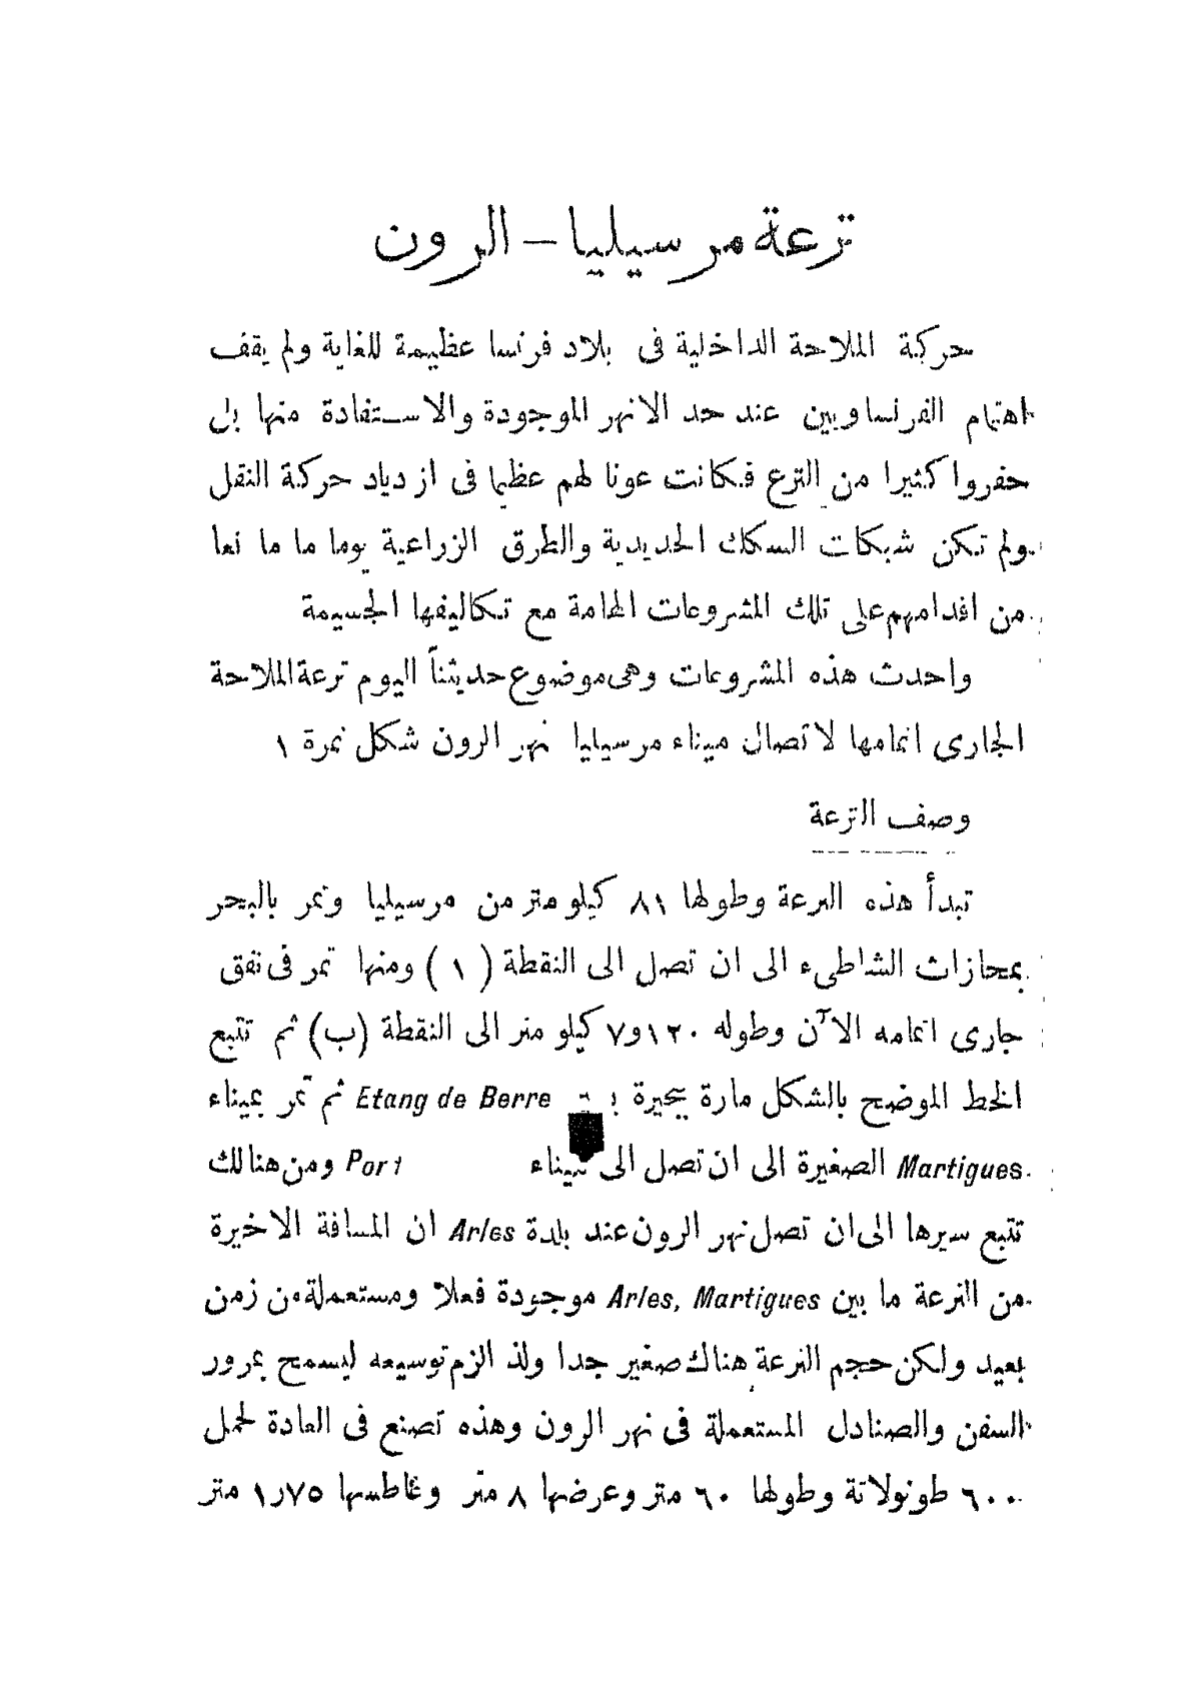 ترعة مرسيليا – الرون
حركة الملاحة الداخلية فى بلاد فرنسا عظيمة للغاية ولم يقف
اهتمام الفرنساويين عند حد الانهر الموجودة والاستفادة منها بل
حفروا كثيرا من الترع فكانت عونا لهم عظيما فى ازدياد حركة النقل
ولم تكن شبكات السكك الحديدية والطرق الزراعية يوما ما مانعا
من اقدامهم على تلك المشروعات الهامة مع تكاليفها الجسيمة
واحدث هذه المشروعات وهى موضوع حديثناً اليوم ترعة الملاحة
الجارى اتمامها لاتصال ميناء مرسيليا نهر الرون شكل نمرة ١
وصف الترعة
تبدأ هذه الترعة وطولها ٨١ كيلو متر من مرسيليا وتمر بالبحر
بمحازات الشاطىء الى ان تصل الى النقطة ( ١ ) ومنها تمر فى نفق
جارى اتمامه الآن وطوله ٧و١٢٠ كيلو متر الى النقطة (ب) ثم تتبع
الخط الموضح بالشكل مارة بحيرة Etang de Berre ثم تمر بميناء
Martigues الصغيرة الى ان تصل الى ميناء Port ومن هنالك
تتبع سيرها الى ان تصل نهر الرون عند بلدة Arles ان المسافة الاخيرة
من الترعة ما بين Arles, Martigues موجودة فعلا ومستعملة من زمن
بعيد ولكن حجم الترعة هناك صغير جدا ولذ الزم توسيعه ليسمح بمرور
السفن والصنادل المستعملة فى نهر الرون وهذه تصنع فى العادة لحمل
٦٠٠ طونولاتة وطولها ٦٠ متر وعرضها ٨ متر وغاطسها ١٫٧٥ متر